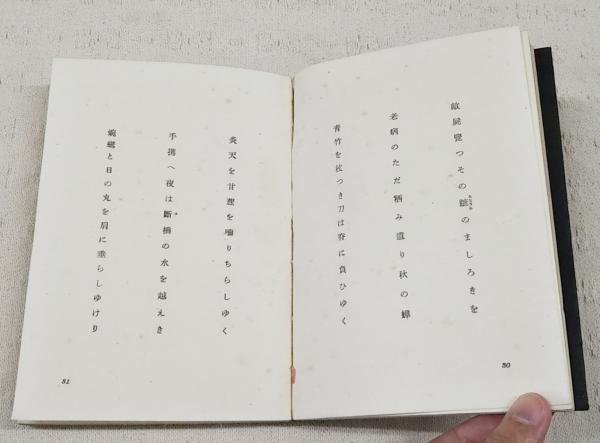 敵屍覽つその蹠のましろきを
老病のただ栖み遺り秋の蟬
青竹を杖つき刀は脊に負ひゆく
30
炎天を甘蔗を嚙りちらしゆく
手携へ夜は斷橋の水を越えき
と日の丸を肩に垂らしゆけり
31